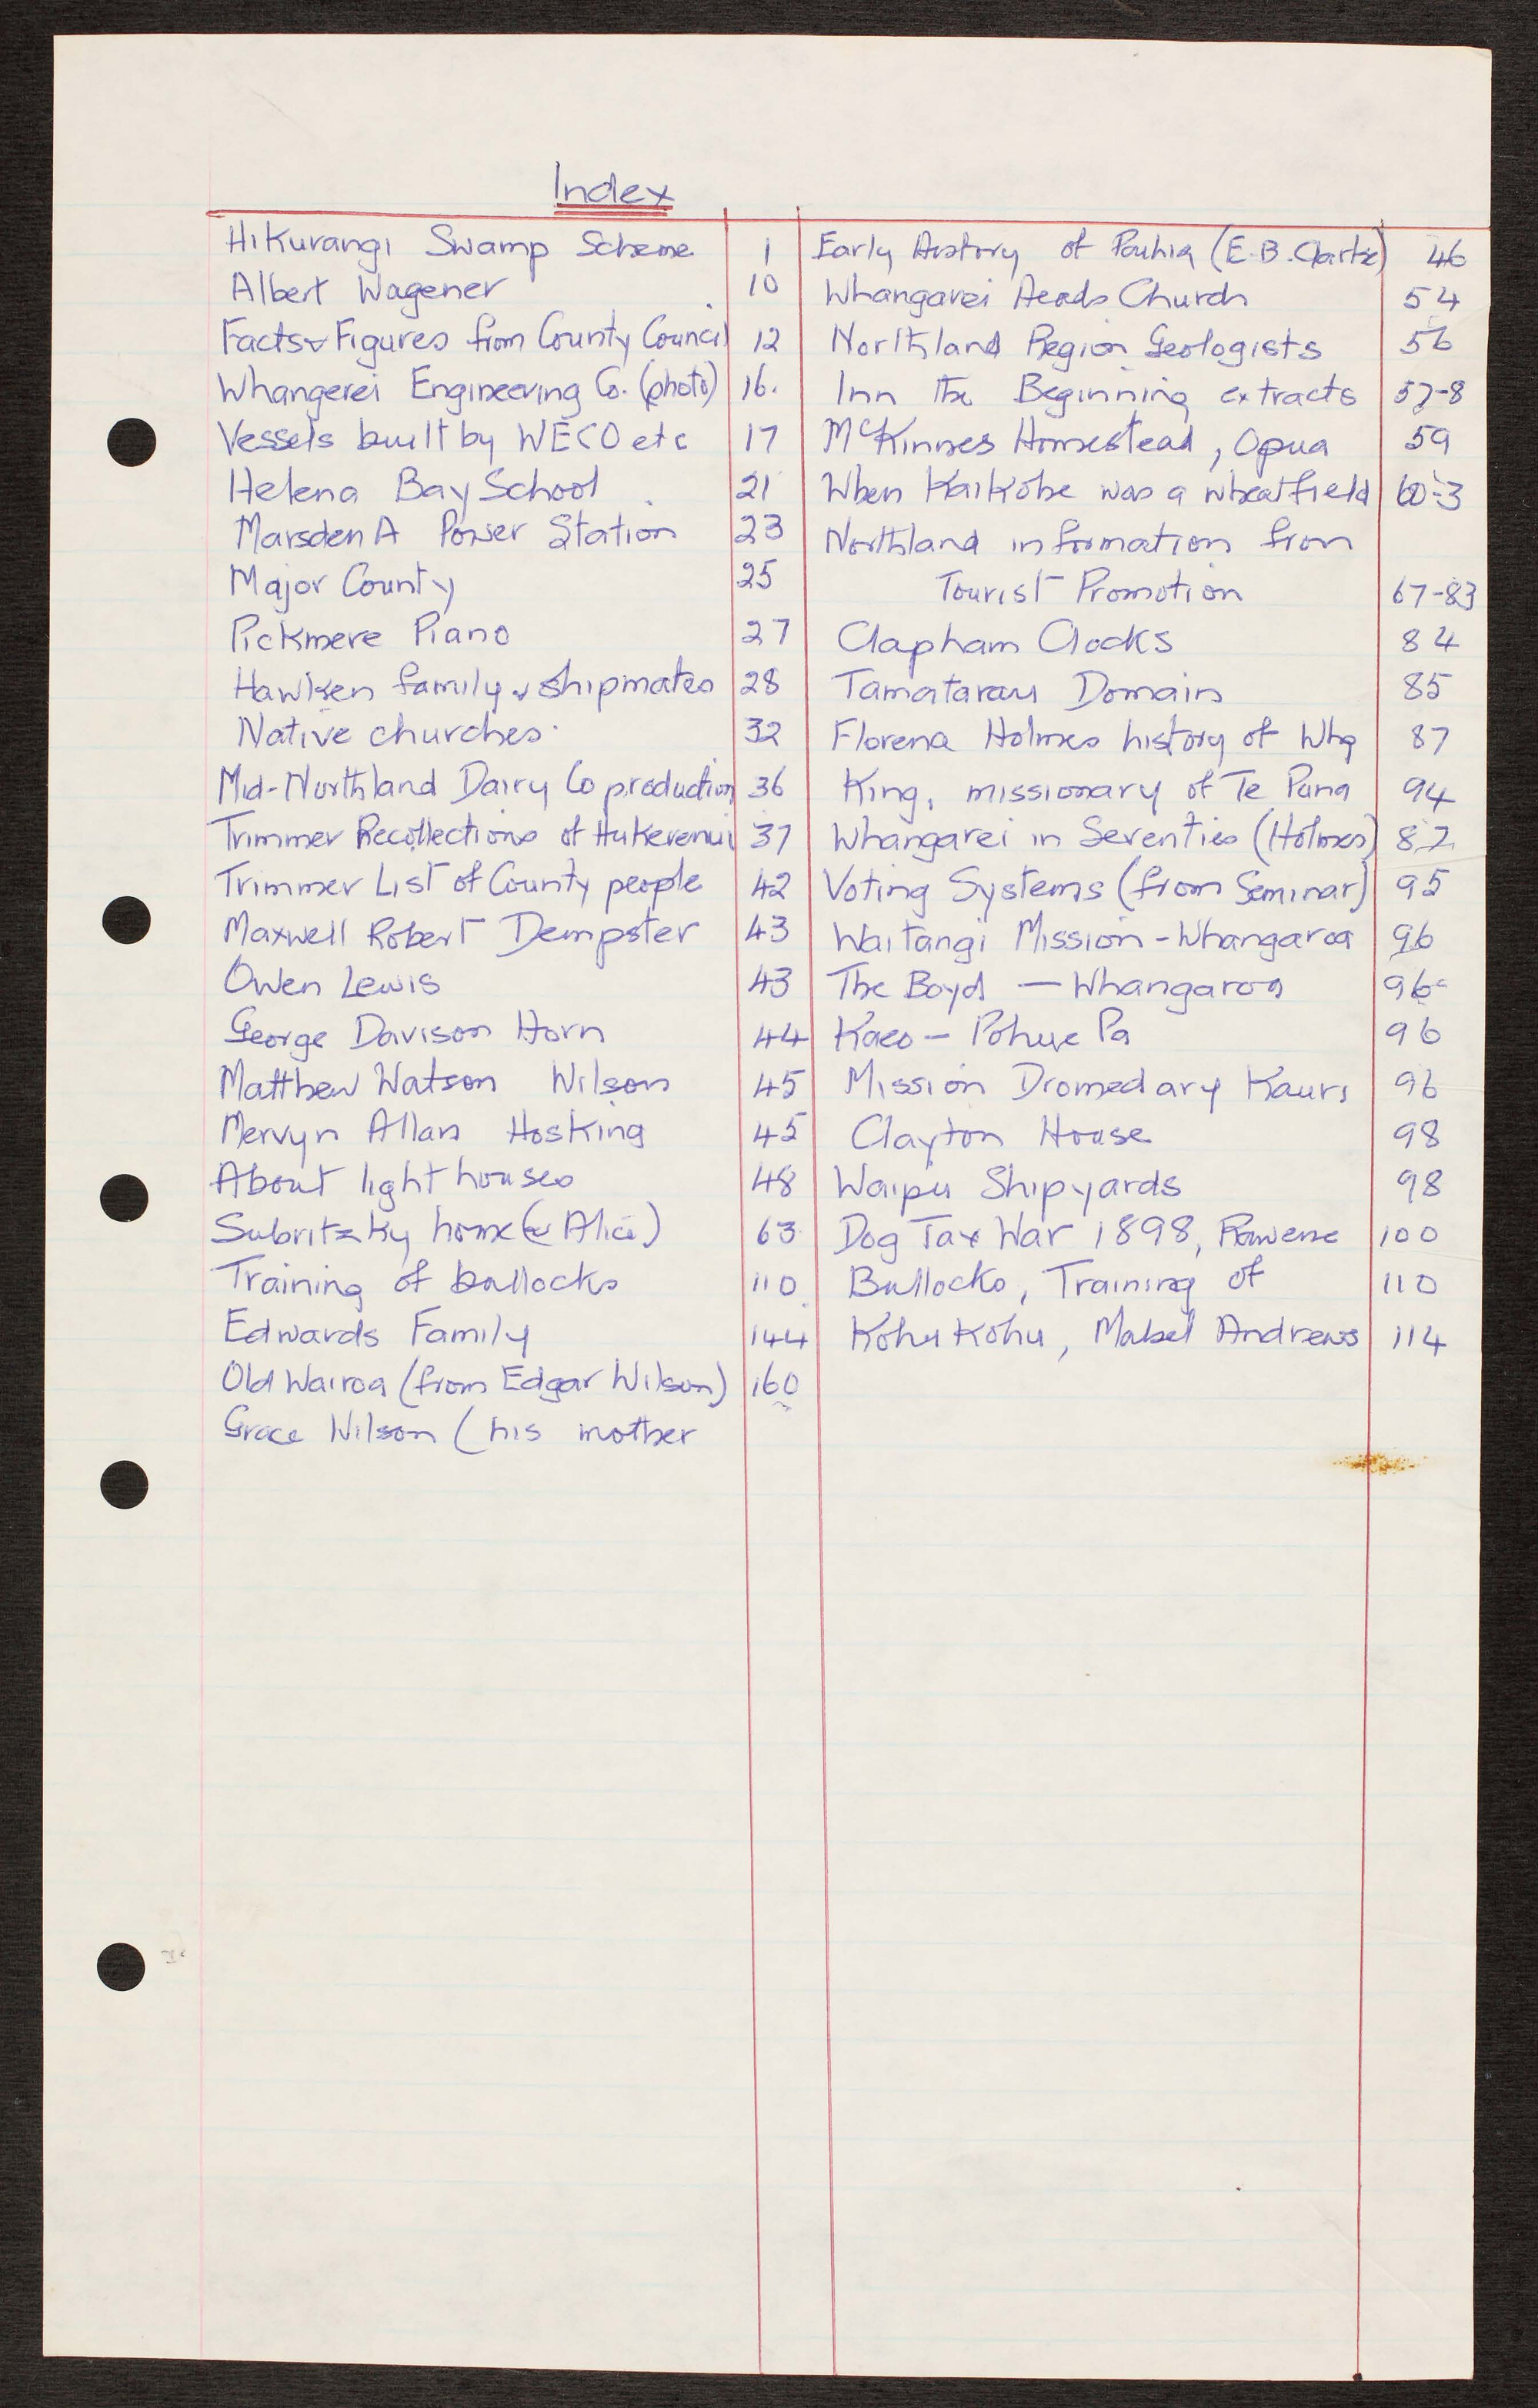 Index
Hikurangi Swamp Scheme 1
Albert Wagener 10
Facts & Figures from County Council 12
Whangerei Engineering Co. (photo) 16.
Vessels built by WECO etc 17
Helena Bay School 21
Marsden A Power Station 23
Major County 25
Pickmere Piano 27
Hawken family & shipmates 28
Native churches 32
Mid-Northland Dairy Co production 36
Trimmer Recollections of Hukerenui 37
Trimmer List of County people 42
Maxwell Robert Dempster 43
Owen Lewis 43
George Davison Horn 44
Matthew Watson Wilson 45
Mervyn Allan Hosking 45
About light houses 48
Subritzky home (& Alice) 63
Training of bullocks 110
Edwards Family 144
Old Wairoa (from Edgar Wilson) 160
Grace Wilson (his mother
Early History of Paihia (E.B. Clarke) 46
Whangarei Heads Church 54
Northland Region Geologists 56
Inn the Beginning extracts 57-8
McKinnes Homestead, Opua 59
When Kaikohe was a wheatfield 60-3
Northland information from
Tourist Promotion 67-83
Clapham Clocks 84
Tamatarau Domain 85
Florena Holmes history of Whg 87
King, missionary of Te Puna 94
Whangarei in Seventies (Holmes) 87
Voting Systems (from Seminar) 95
Waitangi Mission - Whangaroa 96
The Boyd — Whangaroa 96
Kaeo - Pohue Pa 96
Mission Dromedary Kauri 96
Clayton House 98
Waipu Shipyards 98
Dog Tax War 1898, Rawene 100
Bullocks, Training of 110
Kohukohu, Mabel Andrews 114